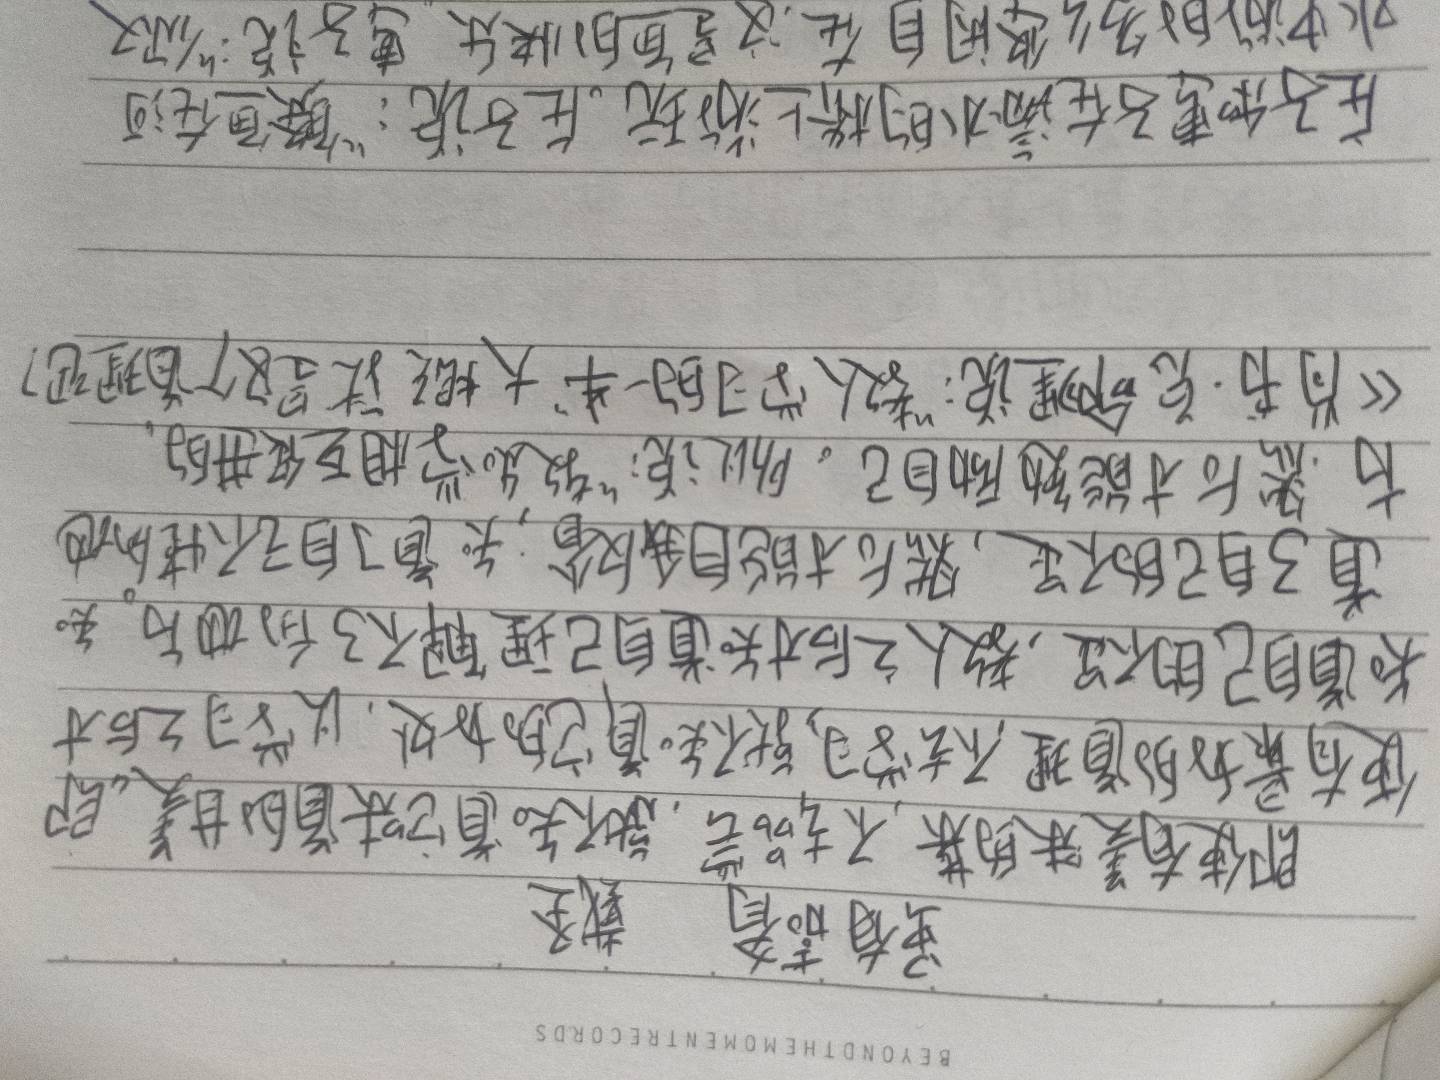 BEYONDTHEMOMENTRECORDS
虽有嘉肴 翻全
即使有美味的菜,不去品尝,就不知道它味道的甘美。即
使有最好的道理,不去学习,就不知道它的好处。以学习之后才
知道自己的不足,教人之后才知道自己理解不了的地方。知
道了自己的不足,然后才能自我反省;知道了自己不懂的地
方,然后才能勉励自己。所以说:“教与学相互促进的。”
《尚书·兑命里说:“教人学习的一半”大概就是及了道理吧?
庄子和惠子在濠水的桥上游玩。庄子说:“鯈鱼在河
水中游的多么悠闲自在,这是鱼的快乐。”惠子说:“你又